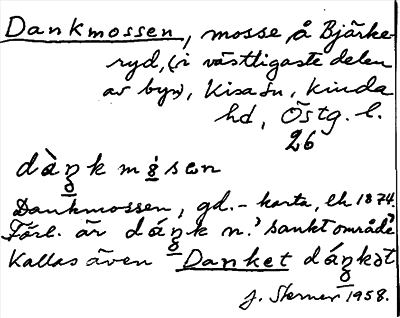 Dankmossen, mosse å Bjärke-
ryd, (i västligaste delen
av byn), Kisa sn, Kinda
hd, Östg. l.
26
dàŋk mɷsɷn
Dankmossen, gd.-karta, ek 1874.
Förl. är dáŋk n. 'sankt område'
Kallas även Danket dáŋkət
J. Sterner 1958.